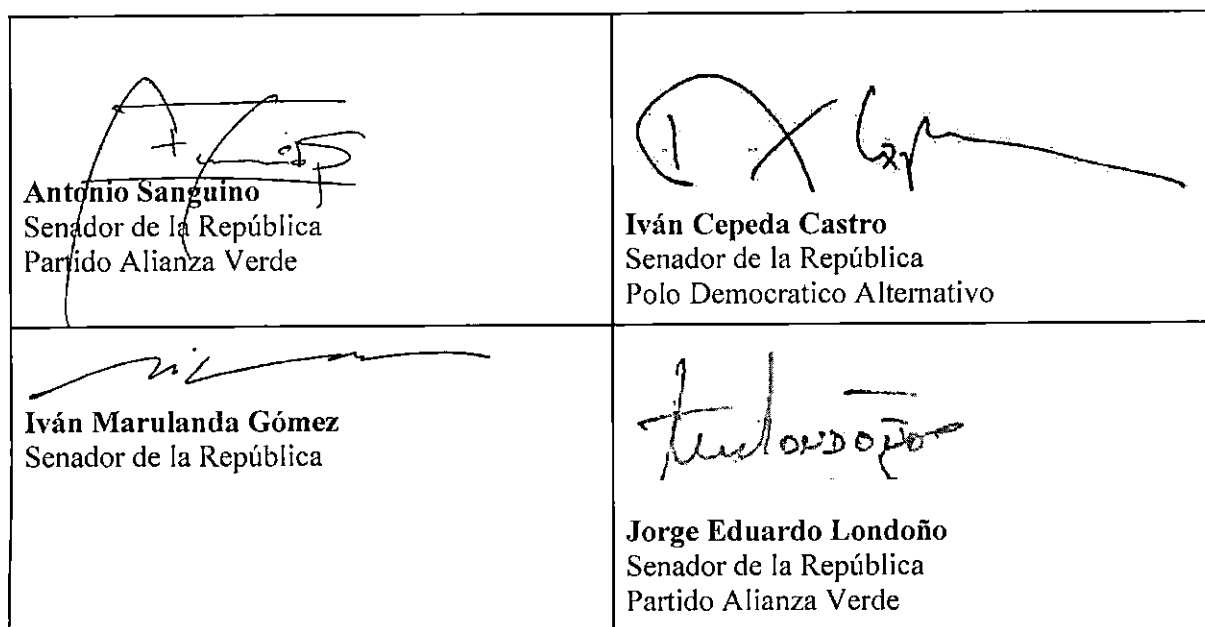 Antonio Sanguino
Senador de la República
Partido Alianza Verde
Iván Cepeda Castro
Senador de la República
Polo Democratico Alternativo
Iván Marulanda Gómez
Senador de la República
Jorge Eduardo Londoño
Senador de la República
Partido Alianza Verde